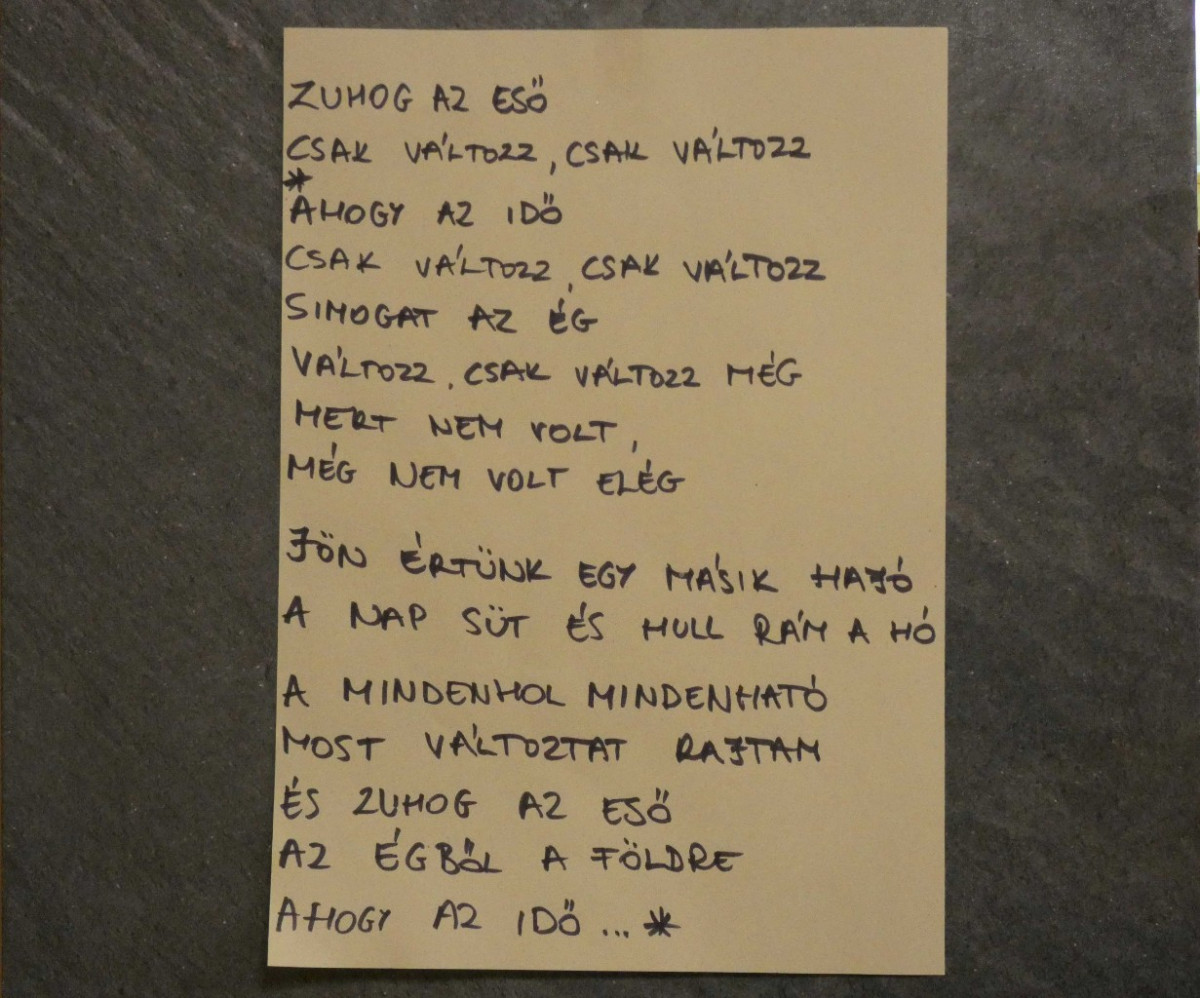 ZUHOG AZ ESŐ
CSAK VÁLTOZZ, CSAK VÁLTOZZ
*
AHOGY AZ IDŐ
CSAK VÁLTOZZ, CSAK VÁLTOZZ
SIMOGAT AZ ÉG
VÁLTOZZ, CSAK VÁLTOZZ MÉG
MERT NEM VOLT,
MÉG NEM VOLT ELÉG
JÖN ÉRTÜNK EGY MÁSIK HAJÓ
A NAP SÜT ÉS HULL RÁM A HÓ
A MINDENHOL MINDENHATÓ
MOST VÁLTOZTAT RAJTAM
ÉS ZUHOG AZ ESŐ
AZ ÉGBŐL A FÖLDRE
AHOGY AZ IDŐ... *